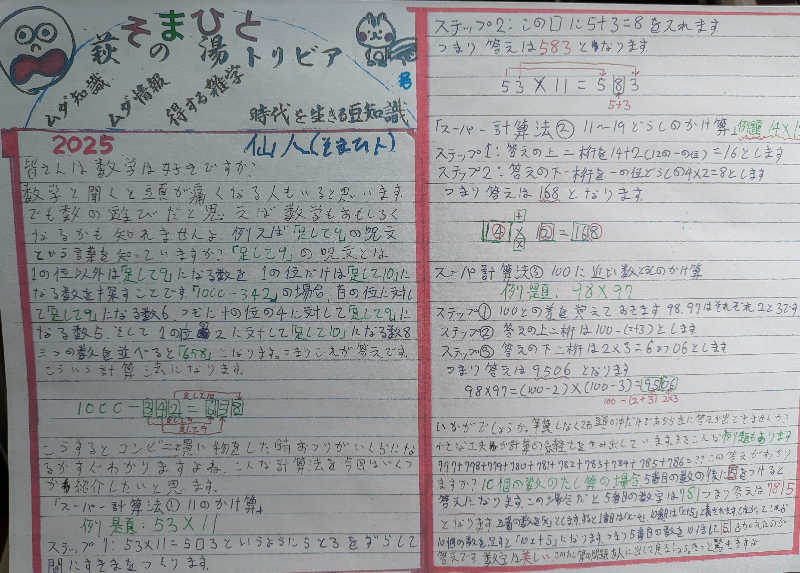 そまひと
萩の湯トリビア
ムダ知識
ムダ情報
得する雑学
時代を生きる豆知識
2025 仙人(そまひと)
皆さんは数学は好きですか?
数学と聞くと頭が痛くなる人もいると思います。
でも数の遊びだと思えば数学もおもしろく
なるかも知れませんよ 例えば「足して9」の呪文
という言葉を知っていますか?「足して9」の呪文とは
1の位以外は「足して9」になる数を 1の位だけは「足して10」に
なる数を探すことです「1000-342」の場合、百の位に対し
て「足して9」になる数6、つぎに十の位の4に対して「足して9」に
なる数5、そして1の位 2に対して「足して10」になる数8
三つの数を並べると「658」になります。つまりこれが答えです。
こういう計算法になります。
足して10
1000-342=658
足して9
足して9
こうするとコンビニで買い物をした時おつりがいくらにな
るかすぐわかりますよね。こんな計算法を今回はいくつ
か紹介したいと思ます。
「スーパー計算法① 11のかけ算」
例題:53×11
ステップ1:53×11=5□3というように5と3をずらして
間にすきまをつくります。
ステップ2:この□に5+3=8を入れます
つまり答えは583となります
53×11=583
5+3
「スーパー計算法② 11〜19どうしのかけ算」例題 14×1
ステップ1:答えの上二桁を14+2(12の一の位)=16とします
ステップ2:答えの下一桁を一の位どうしの4×2=8とします
つまり答えは168となります。
+
14×12=168
×
スーパ計算法③ 100に近い数どうしのかけ算
例題:98×97
ステップ① 100との差を覚えておきます 98.97はそれぞれ2と3です
ステップ② 答えの上二桁は100-(2+3)とします
ステップ③ 答えの下二桁は2×3=6の06とします
つまり答えは9506となります
98×97=(100-2)×(100-3)=9506
100-(2+3) 2×3
いかがでしょうか。筆算しなくても頭の中だけであっさりに答えが出てきませんか?
777+778+779+780+781+782+783+784+785+786=?? この答えがわかり
ますか?10個の数のたし算の場合 5番目の数の後に5をつけると
答えになります。この場合だと5番目の数字は781つまり答えは7815
となります
10個の数を足すと「10x+5」になります。つまり5番目の数を10倍して5
答えです 数学は美しい